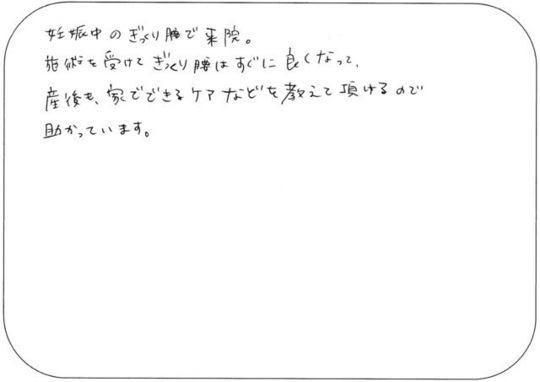 妊娠中のぎっくり腰で来院。
施術を受けてぎっくり腰はすぐに良くなって、
産後も、家でできるケアなどを教えて頂けるので
助かっています。